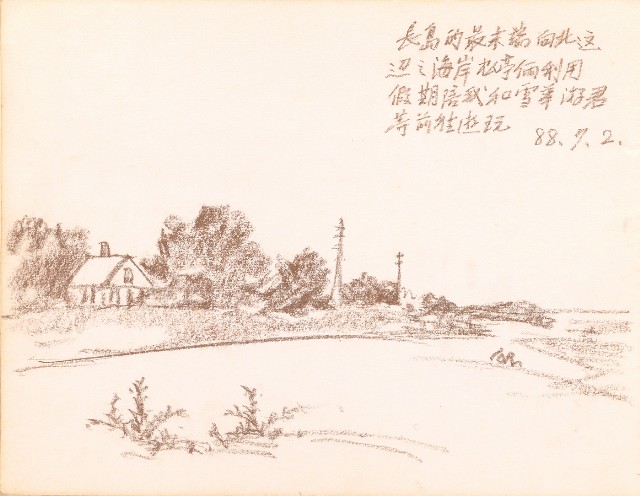 長島的最末端向北这
边之海岸松亭倆利用
假期陪我和雪華游君
等前往遊玩
88.7.2.